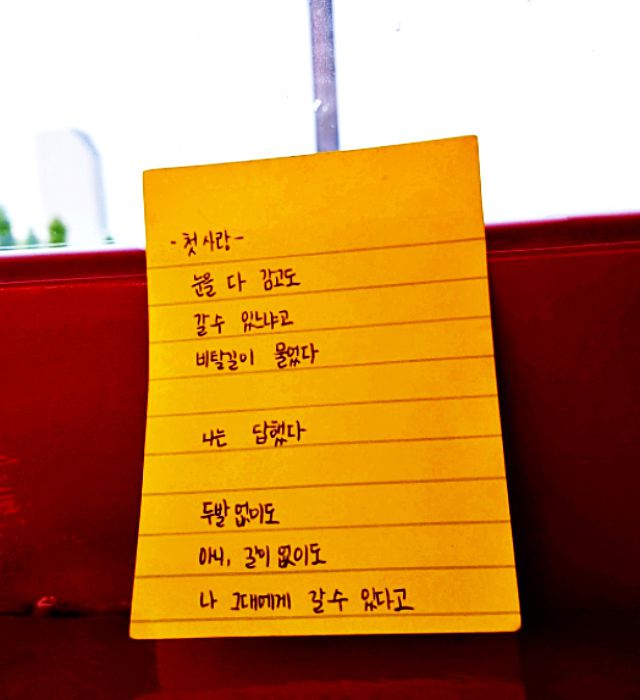 -첫사랑-
눈을 다 감고도
갈수 있느냐고
비탈길이 물었다
나는 답했다
두발 없이도
아니, 길이 없이도
나 그대에게 갈수 있다고